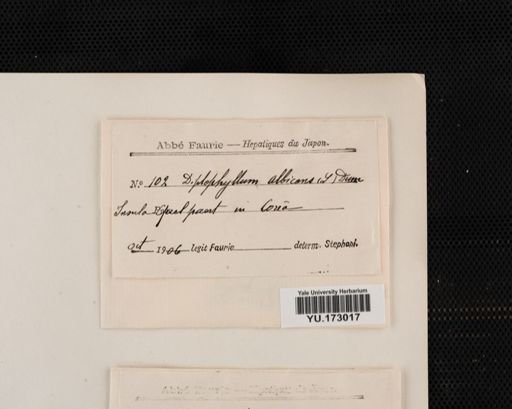 Abbé Faurie — Hepatiques du Japon.
No. 102 Diplophyllum albicans (L) Dum
Insula Quelpaert in Corea
Oct 1906 legit Faurie determ. Stephani.
Yale University Herbarium
YU.173017